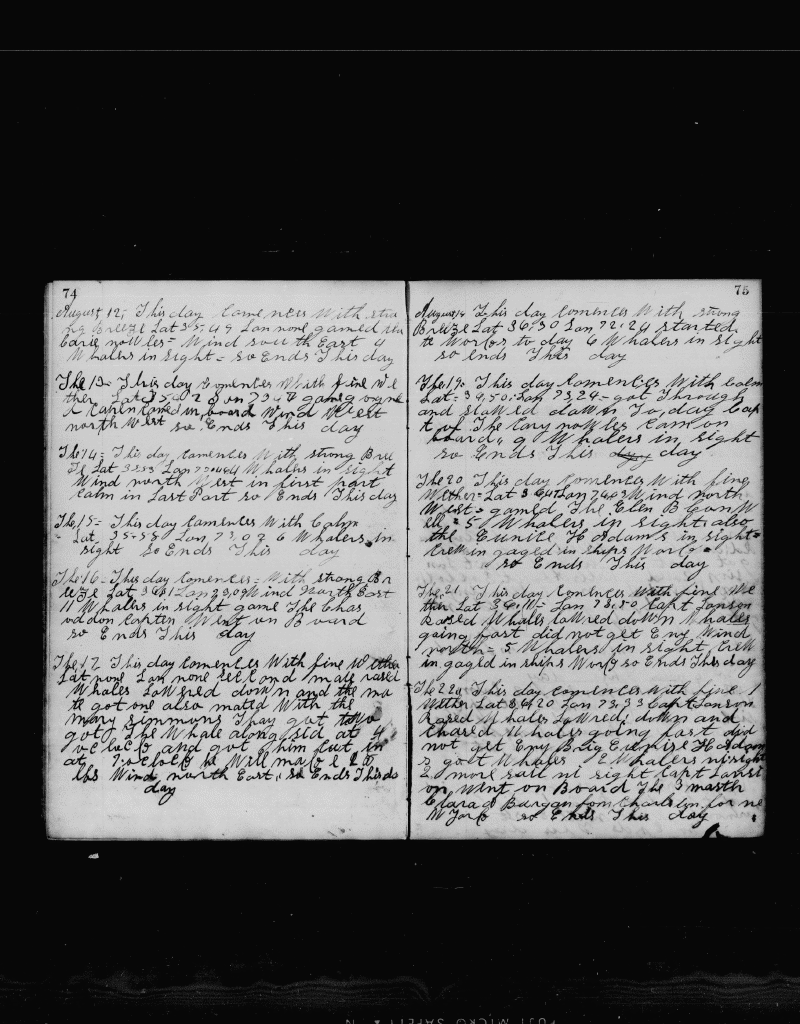 74
August 12, This day Comences With stro
ng Breeze Lat 35,49 Lon none gamed
Carie nowles = Wind south East 4
Whalers in sight = so Ends This day
The 13 = This day Comences With fine We
ther Lat on gam
Capten Came on board Wind West
north West so Ends This day
The 14 = This day Comences With strong Bree
ze Lat Lon 4 Whalers in sight
Wind north West in first part
Calm in Last Part so Ends This day
The 15 = This day Comences With Calm
Lat 35-55 Lon 73,07 6 Whalers in
sight so Ends This day
The 16 = This day Comences = With strong Br
eeze Lat Lon Wind North East
11 Whalers in sight game The Chas
Capten Went on Board
so Ends This day
The 17 This day Comences With fine Wether
Lat none Lon none second mate rased
Whales Lowered down and the ma
te got one also mated With the
mary simmons Thay got
got The Whale along sid at 4
oclock and got him cut in
at oclock he Will make
bbs Wind north East, so Ends This da
day
75
August This day Comences With strong
Breeze Lat 36,30 Lon 72,24 started
te Work to day 6 Whalers in sight
so ends This day
The 19 = This day Comences With Calm
Lat = 34,50 = Lon 73,24 = got Through
and stowed down To, day Cap
t of The Cary nowles Cam on
board, 9 Whalers in sight
so Ends This day
The 20 This day Comences With fine
Wether = Lat Lon Wind north
West = gamed The Elen
5 Whalers in sight also
the Eunice H Adams in sight =
Crew in gaged in ships Work =
so Ends This day
The 21 This day Comences With fine We
ther Lat Lon 73,50 Capt
Rased Whales Lowred down Whales
going fast did not get Eny Wind
north = 5 Whalers in sight, Crew
in gaged in ships Work so Ends This day
The 22 This day Comences With fine
Wether Lat Lon 73,33 Capt
Rased Whales Lowred down and
Chased Whales going fast did
not get Eny Brig Eunise H Adam
s got Whales Whalers
2 more sail in sight Capt
on Went on Board The 3 masth
Clara from Charlston for ne
W York so Ends This day